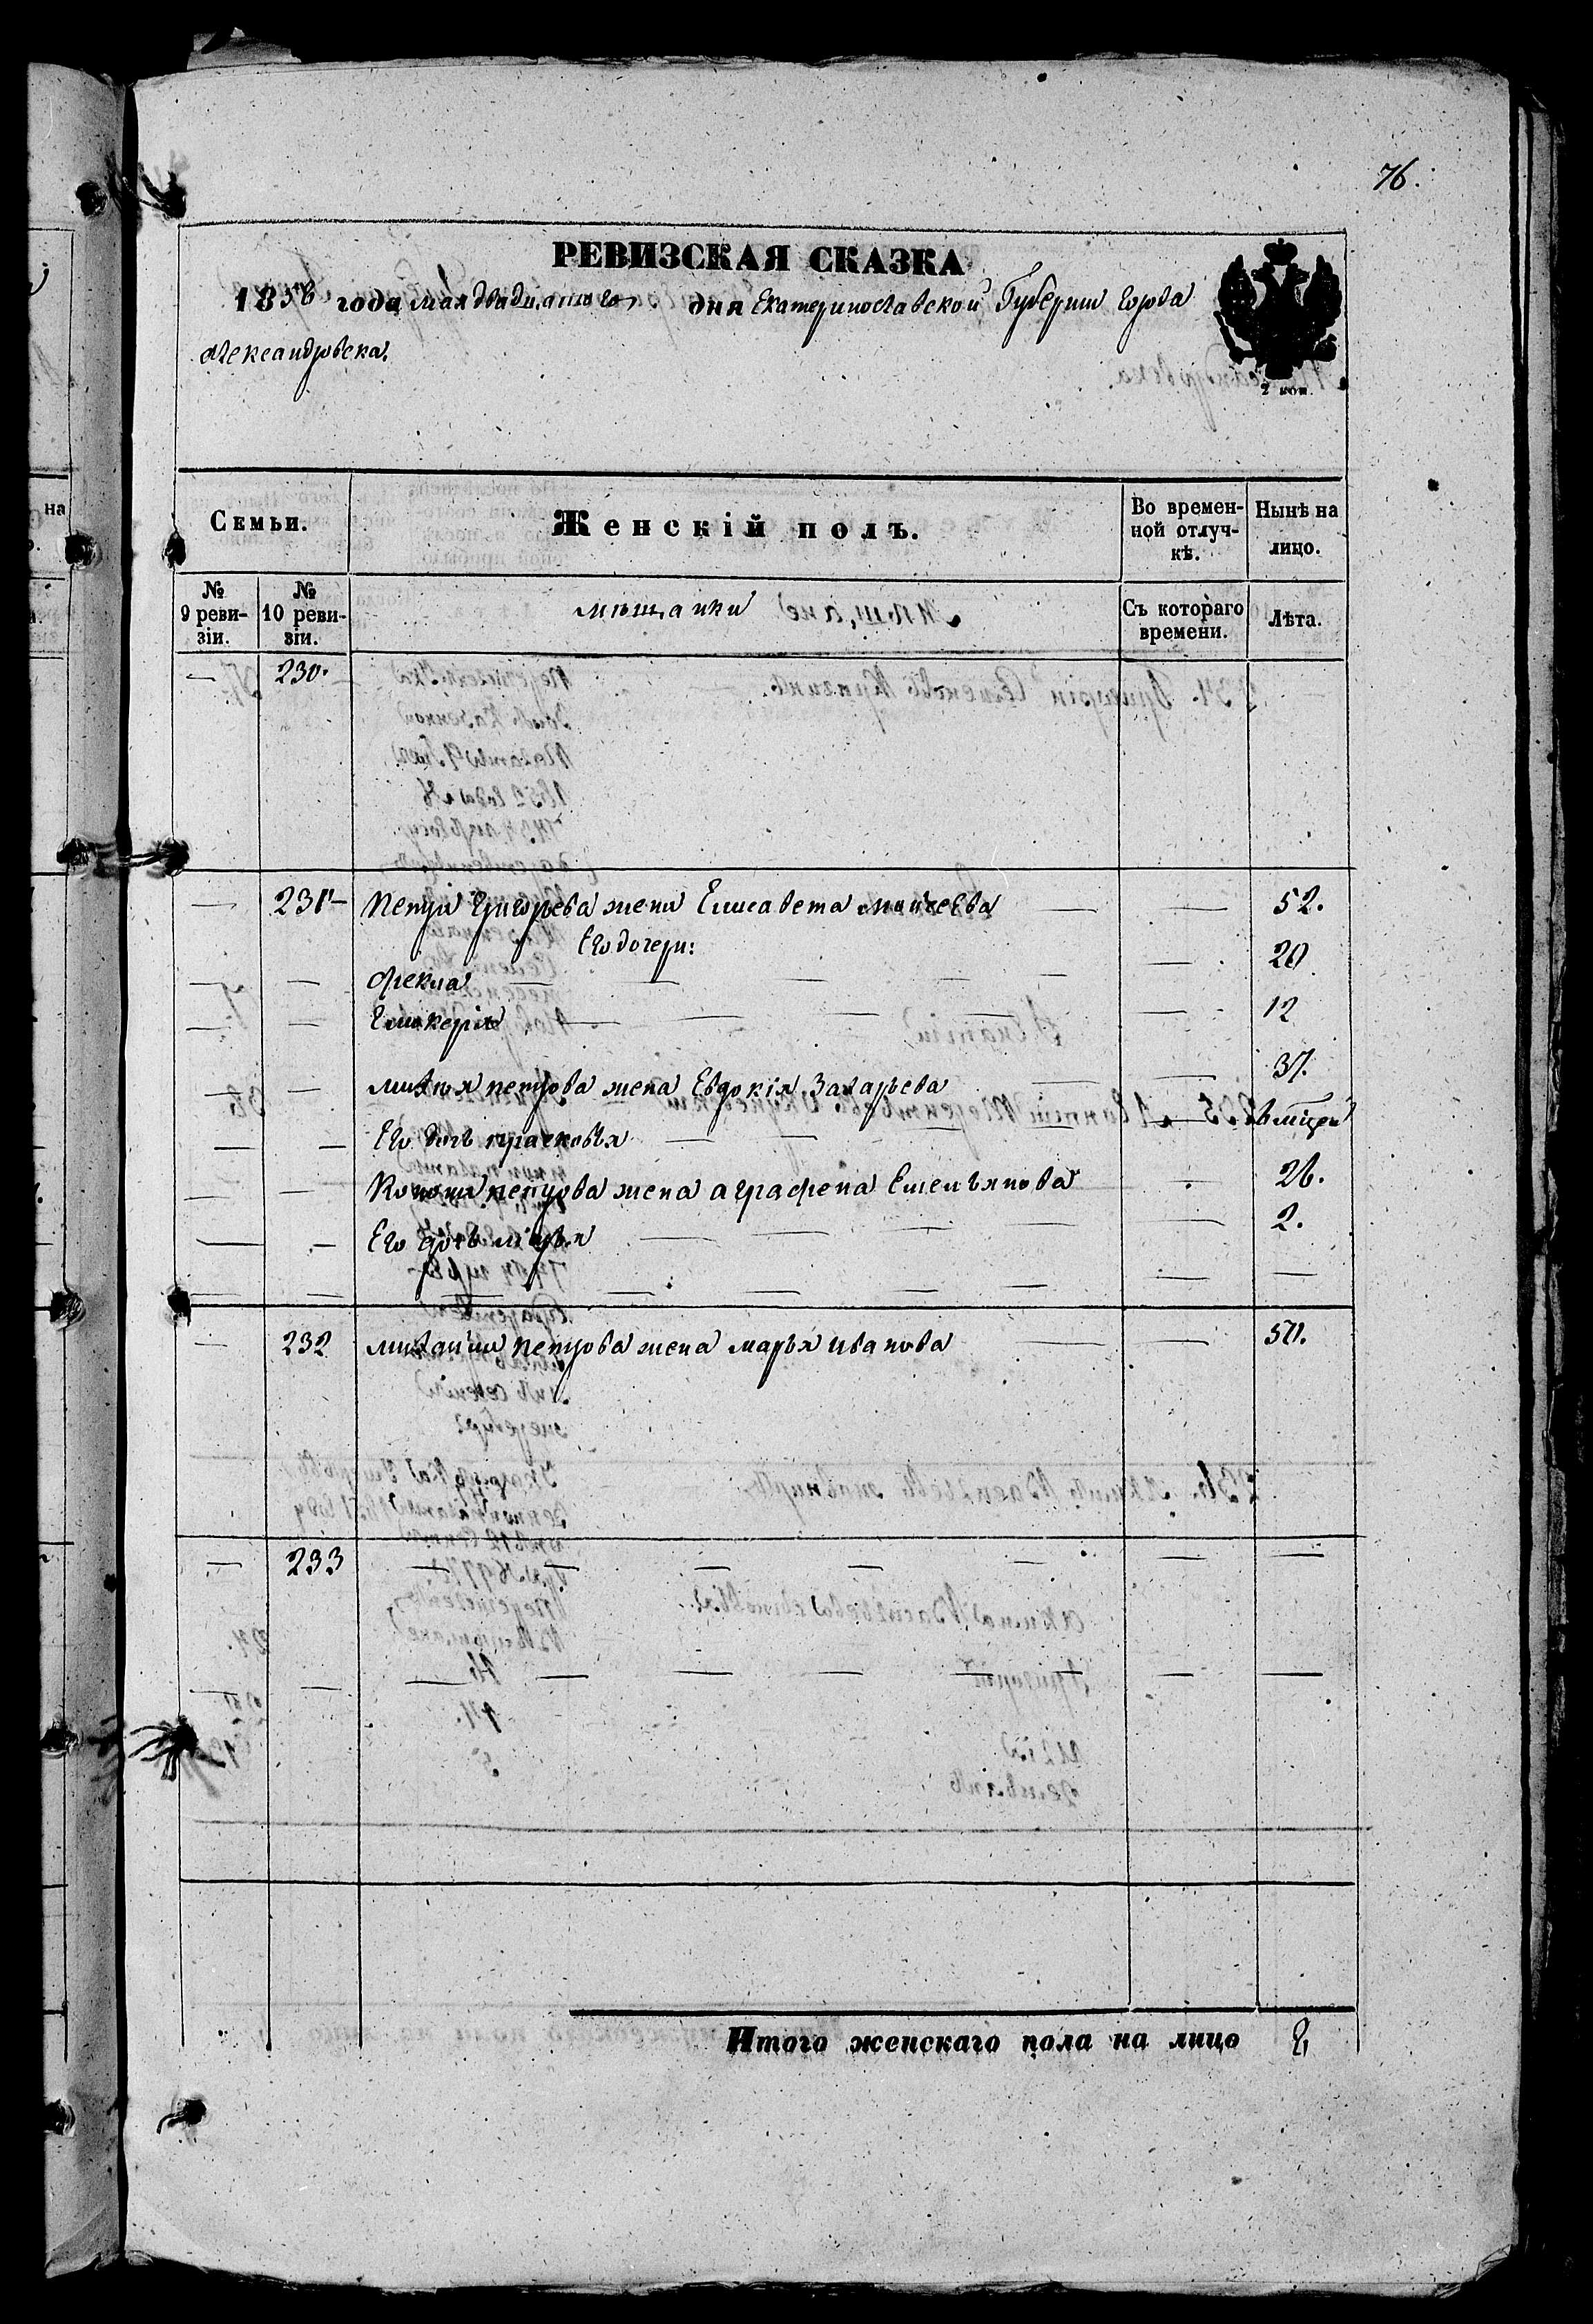 76.
РЕВИЗСКАЯ СКАЗКА
1858 года мая двадцатого дня Екатеринославской Губернии города
Александровска.
2 коп.
Семьи.
Женскій полъ.
Во времен-
ной отлуч-
кѣ.
Нынѣ на
лицо.
№
9 реви-
зіи.
№
10 реви-
зіи.
мѣщанки
Съ котораго
времени.
Лѣта.
— 230.
— 231 — Петра Григорьева жена Елисавета Моисеева — — 52.
Его дочери:
— — Фекла — — — — — 20
— — Гликерія — — — — — 12
— — петрова жена Евдокія Захарьева — — 37.
— — Его дочь прасковья — — —
— — петрова жена аграфена Емельянова 26.
— — Его дочь — — — — — 2.
— 232 михаила петрова жена марья иванова — — 50.
— 233 — — — — — — —
Итого женскаго пола на лицо 8